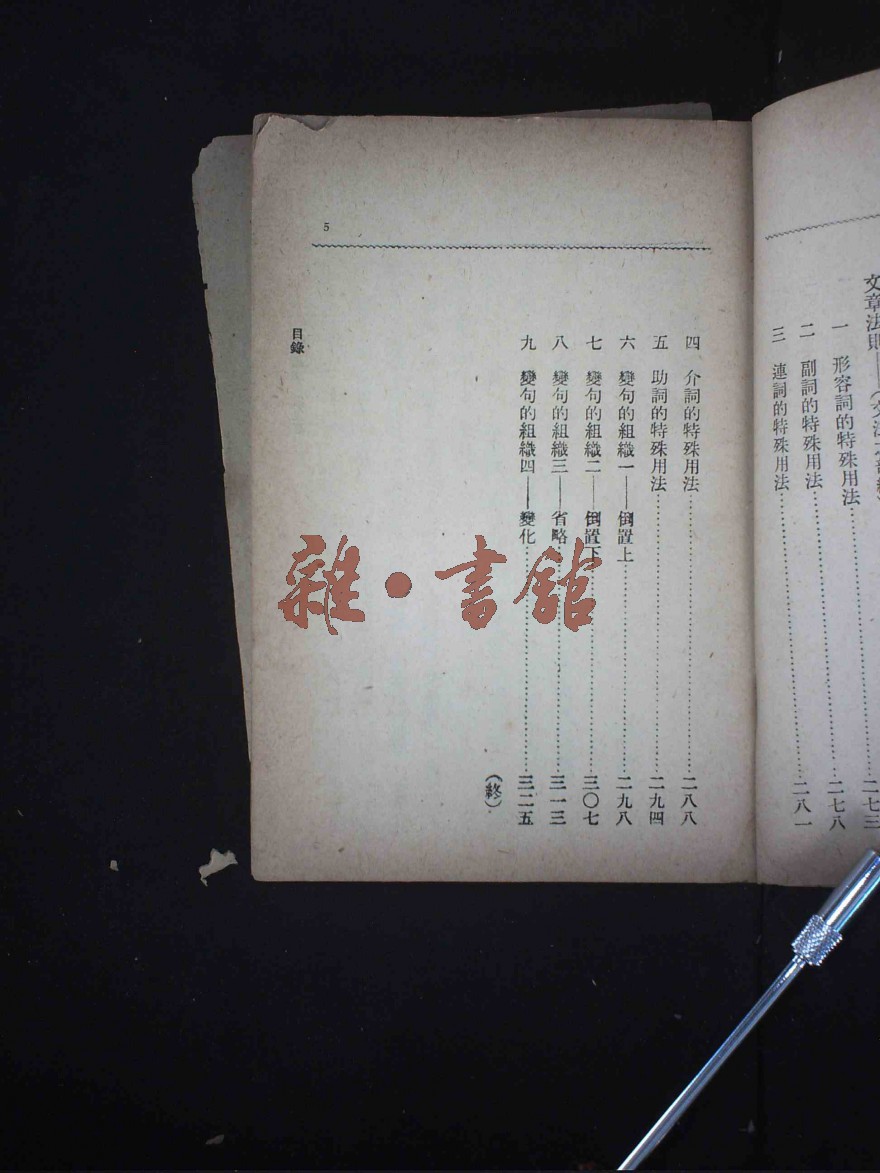 文章法則——（文法之部終）
一　形容詞的特殊用法……二七三
二　副詞的特殊用法……二七八
三　連詞的特殊用法……二八一
四　介詞的特殊用法……二八八
五　助詞的特殊用法……二九四
六　變句的組織一——倒置上……二九八
七　變句的組織二——倒置下……三〇七
八　變句的組織三——省略……三一三
九　變句的組織四——變化……三二五
（終）
目錄
5
雜·書館